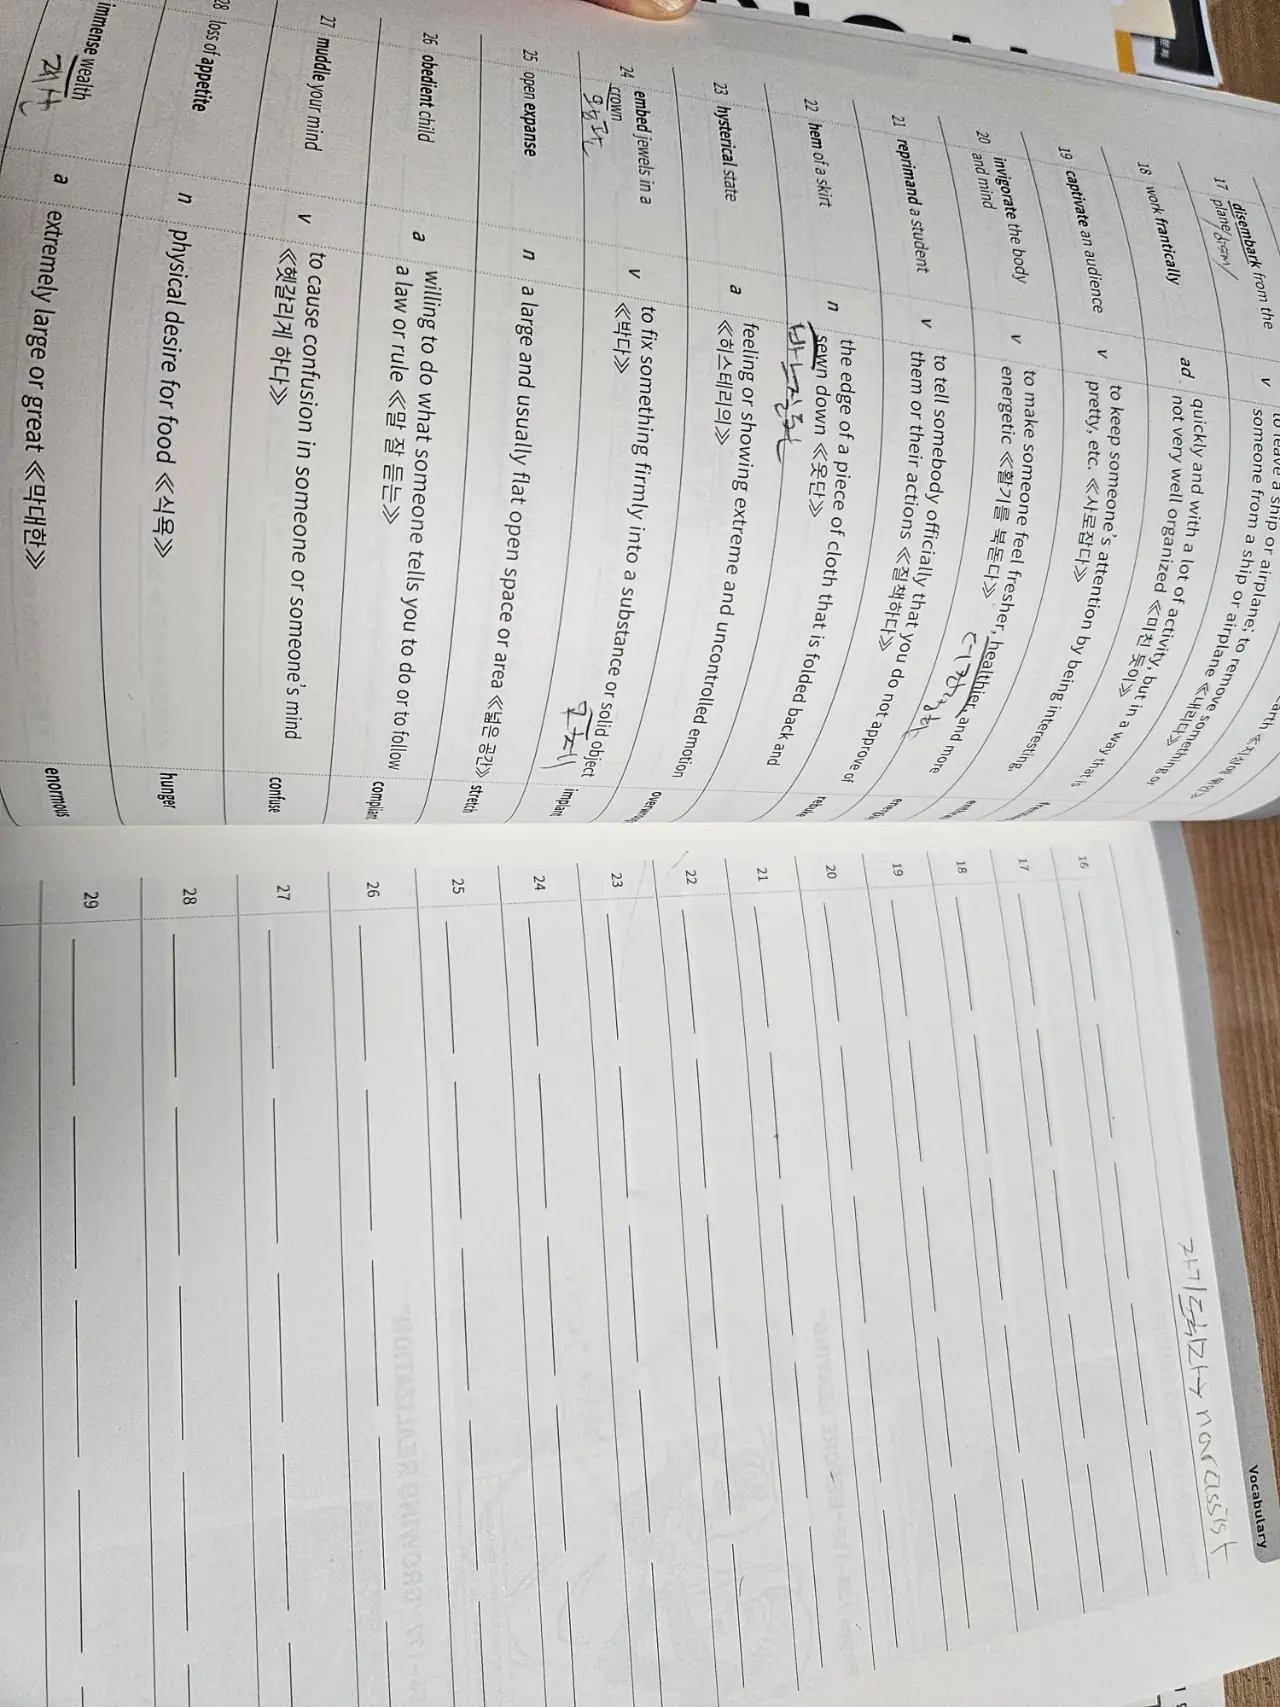 17 disembark from the
plane/dream/
v
someone from a ship or airplane; to remove something or
18 work frantically
ad.
quickly and with a lot of activity, but in a way that is
not very well organized ≪미친 듯이≫
19 captivate an audience
v
to keep someone's attention by being interesting,
pretty, etc. ≪사로잡다≫
20 invigorate the body
and mind
v
to make someone feel fresher, healthier, and more
energetic ≪활기를 북돋다≫
더건강한
21 reprimand a student
v
to tell somebody officially that you do not approve of
them or their actions ≪질책하다≫
22 hem of a skirt
n
the edge of a piece of cloth that is folded back and
sewn down ≪옷단≫
바느질한
23 hysterical state
a
feeling or showing extreme and uncontrolled emotion
≪히스테리의≫
24 embed jewels in a
crown
왕관
v
to fix something firmly into a substance or solid object
≪박다≫
implant
25 open expanse
n
a large and usually flat open space or area ≪넓은 공간≫
stretch
26 obedient child
a
willing to do what someone tells you to do or to follow
a law or rule ≪말 잘 듣는≫
compliant
27 muddle your mind
v
to cause confusion in someone or someone's mind
≪헷갈리게 하다≫
confuse
28 loss of appetite
n
physical desire for food ≪식욕≫
hunger
immense wealth
재산
a
extremely large or great ≪막대한≫
enormous
Vocabulary
자기도취자→ narcissist
16
17
18
19
20
21
22
23
24
25
26
27
28
29